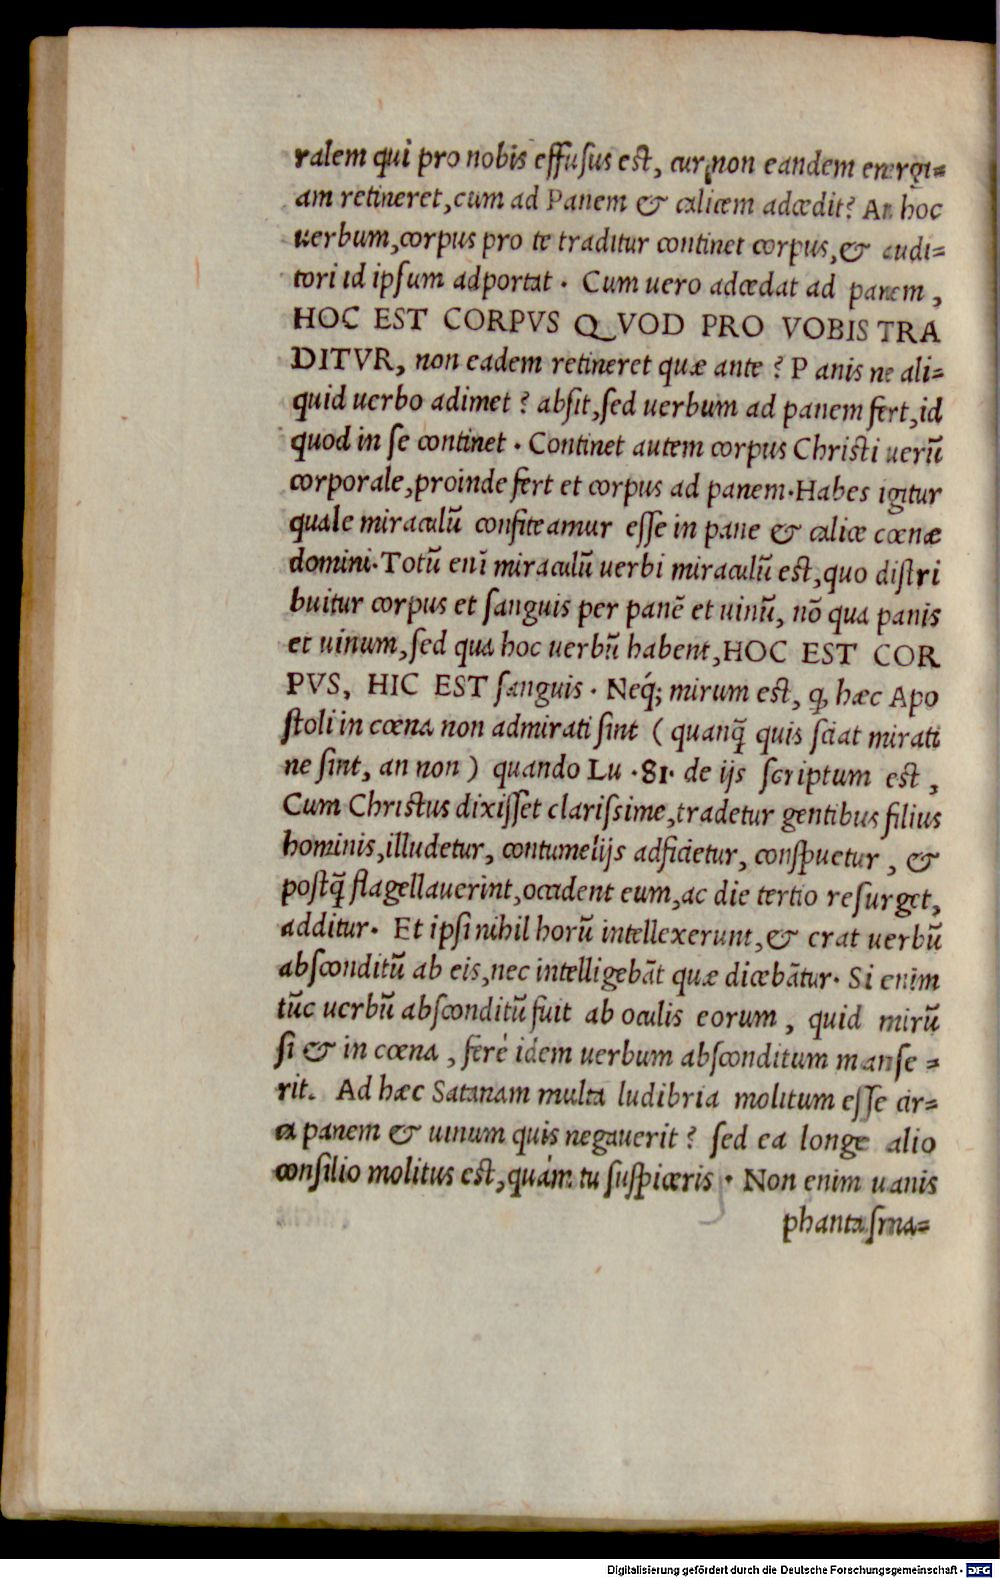 ralem qui pro nobis effusus est, cur non eandem energi=
am retineret, cum ad Panem & calicem adcedit? An hoc
uerbum, corpus pro te traditur continet corpus, & audi=
tori id ipsum adportat. Cum uero adcedat ad panem,
HOC EST CORPVS QVOD PRO VOBIS TRA
DITVR, non eadem retineret quæ ante? Panis ne ali=
quid uerbo adimet? absit, sed uerbum ad panem fert, id
quod in se continet. Continet autem corpus Christi uerũ
corporale, proinde fert et corpus ad panem. Habes igitur
quale miraculũ confiteamur esse in pane & calice cœnæ
domini. Totũ enĩ miraculũ uerbi miraculũ est, quo distri
buitur corpus et sanguis per panẽ et uinũ, nõ qua panis
et uinum, sed qua hoc uerbũ habent, HOC EST COR
PVS, HIC EST sanguis. Neq́; mirum est, ꝙ hæc Apo
stoli in cœna non admirati sint (quanq̃ quis sciat mirati
ne sint, an non) quando Lu. 81. de ijs scriptum est,
Cum Christus dixisset clarissime, tradetur gentibus filius
hominis, illudetur, contumelijs adficietur, conspuetur, &
postq̃ flagellauerint, occident eum, ac die tertio resurget,
additur. Et ipsi nihil horũ intellexerunt, & erat uerbũ
absconditũ ab eis, nec intelligebãt quæ dicebãtur. Si enim
tũc uerbũ absconditũ fuit ab oculis eorum, quid mirũ
si & in cœna, ferè idem uerbum absconditum manse=
rit. Ad hæc Satanam multa ludibria molitum esse cir=
ca panem & uinum quis negauerit? sed ea longe alio
consilio molitus est, quám tu suspiceris. Non enim uanis
phantasma=
Digitalisierung gefördert durch die Deutsche Forschungsgemeinschaft - DFG